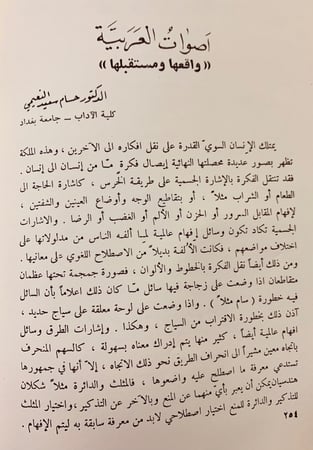 اصوات العربيَّة
« واقعها ومستقبلها »
الدكتور حسام سعيد النعيمي
كلية الآداب ــ جامعة بغداد
يمتلك الإنسان السويّ القدرة على نقل افكاره الى الآخرين ، وهذه الملكة
تظهر بصور عديدة محصلتها النهائية إيصال فكرة مّا من إنسان الى إنسان .
فقد تنتقل الفكرة بالإشارة الجسمية على طريقة الخرس ، كاشارة الحاجة الى
الطعام أو الشراب مثلاً ، أو بتقاطيع الوجه وأوضاع العينين والشفتين ،
لإفهام المقابل السرور أو الحزن أو الألم أو الغضب أو الرضا . والاشارات
الجسمية تكاد تكون وسائل إفهام عالمية لما ألفه الناس من مدلولاتها على
اختلاف مواضعهم ، فكانت الألفة بديلاً من الاصطلاح اللغوي على معانيها .
ومن ذلك أيضاً نقل الفكرة بالخطوط والألوان ، فصورة جمجمة تحتها عظمان
متقاطعان اذا وضعتها على زجاجة فيها سائل مّا كان ذلك اعلاماً بأن السائل
فيه خطورة ( سام مثلاً ) . واذا وضعت على لوحة معلقة على سياج حديد ،
آذن ذلك بخطورة الاقتراب من السياج ، وهكذا . وإشارات الطرق وسائل
افهام عالمية أيضاً ، كثير منها يتم إدراك معناه بسهولة ، كالسهم المنحرف
باتجاه معين مشيراً الى انحراف الطريق نحو ذلك الاتجاه ، إلا أنها في جمهورها
تستدعي معرفة ما اصطلح عليه واضعوها ، فالمثلث والدائرة مثلاً شكلان
هندسيان يمكن أن يعبر بأيّ منهما عن المنع وبالآخر عن التذكير ، واختيار المثلث
للتذكير والدائرة للمنع اختيار اصطلاحي لابد من معرفة سابقة به ليتم الإفهام .
٢٥٤